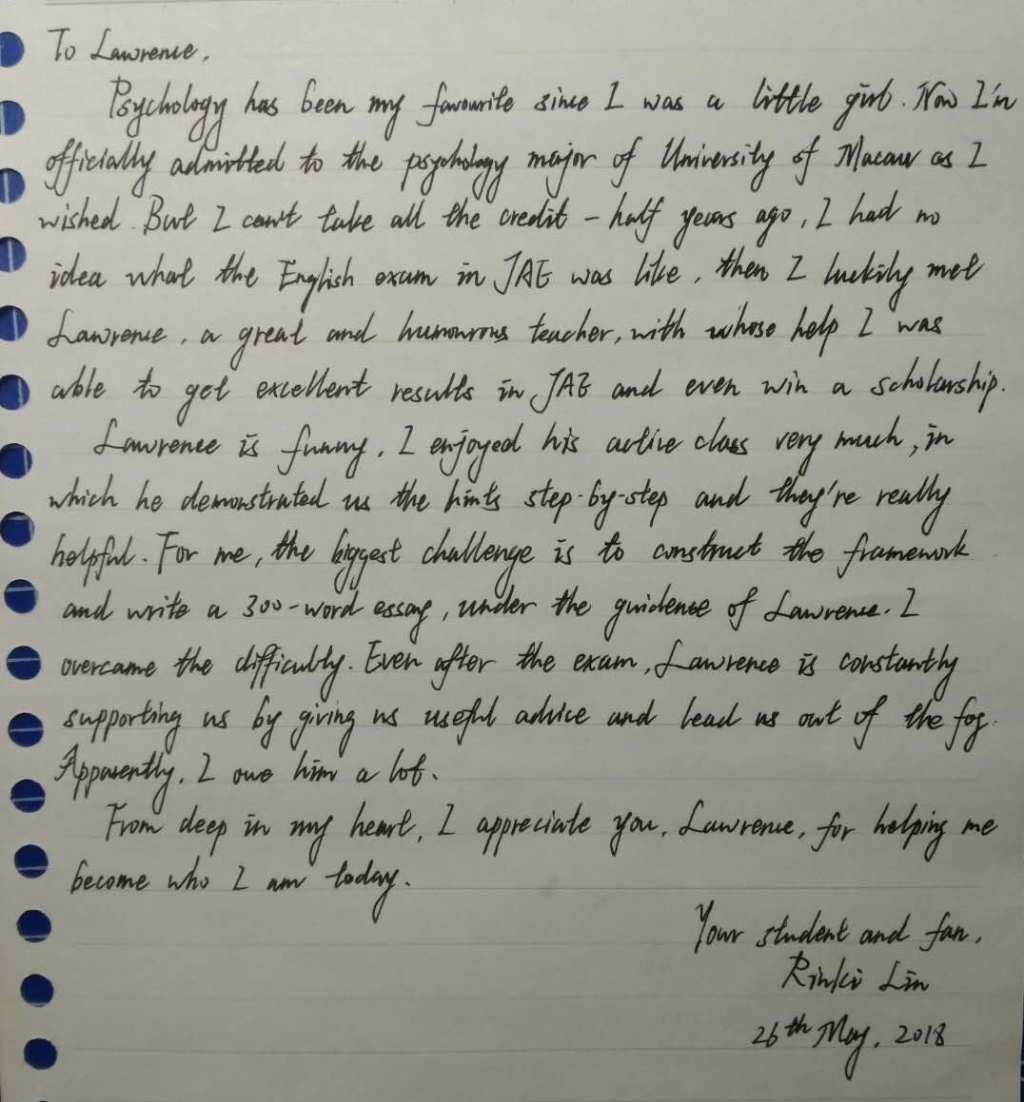 To Lawrence,
Psychology has been my favourite since I was a little girl. Now I'm
officially admitted to the psychology major of University of Macau as I
wished. But I can't take all the credit - half years ago, I had no
idea what the English exam in JAE was like, then I luckily met
Lawrence, a great and humourous teacher, with whose help I was
able to get excellent results in JAE and even win a scholarship.
Lawrence is funny, I enjoyed his active class very much, in
which he demonstrated us the hints step-by-step and they're really
helpful. For me, the biggest challenge is to construct the framework
and write a 300-word essay, under the guidence of Lawrence. I
overcame the difficulty. Even after the exam, Lawrence is constantly
supporting us by giving us useful advice and lead us out of the fog.
Apparently, I owe him a lot.
From deep in my heart, I appreciate you, Lawrence, for helping me
become who I am today.
Your student and fan,
Rinki Lin
26th May, 2018